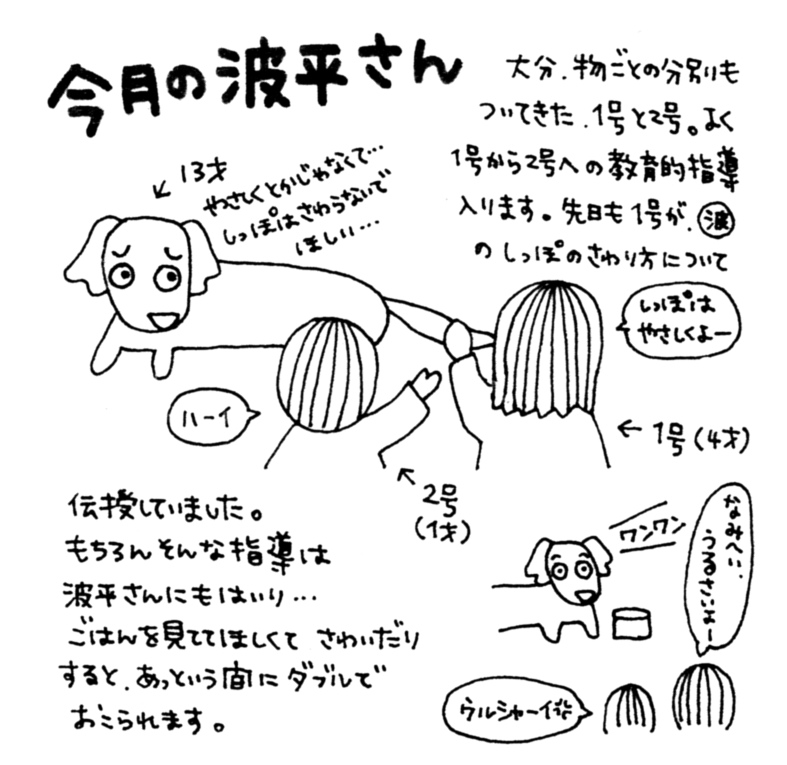 今月の波平さん
大分、物ごとの分別も
ついてきた、1号と2号。よく
1号から2号への教育的指導
入ります。先日も1号が、波
のしっぽのさわり方について
← 13才
やさしくとかじゃなくて…
しっぽはさわらないで
ほしい…
しっぽは
やさしくよー
ハーイ
← 1号(4才)
← 2号
(1才)
伝授していました。
もちろんそんな指導は
波平さんにもはいり…
ごはんを見ててほしくて さわいだり
すると、あっという間にダブルで
おこられます。
ワンワン
なみへい、
うるさいよー
ウルシャーイ